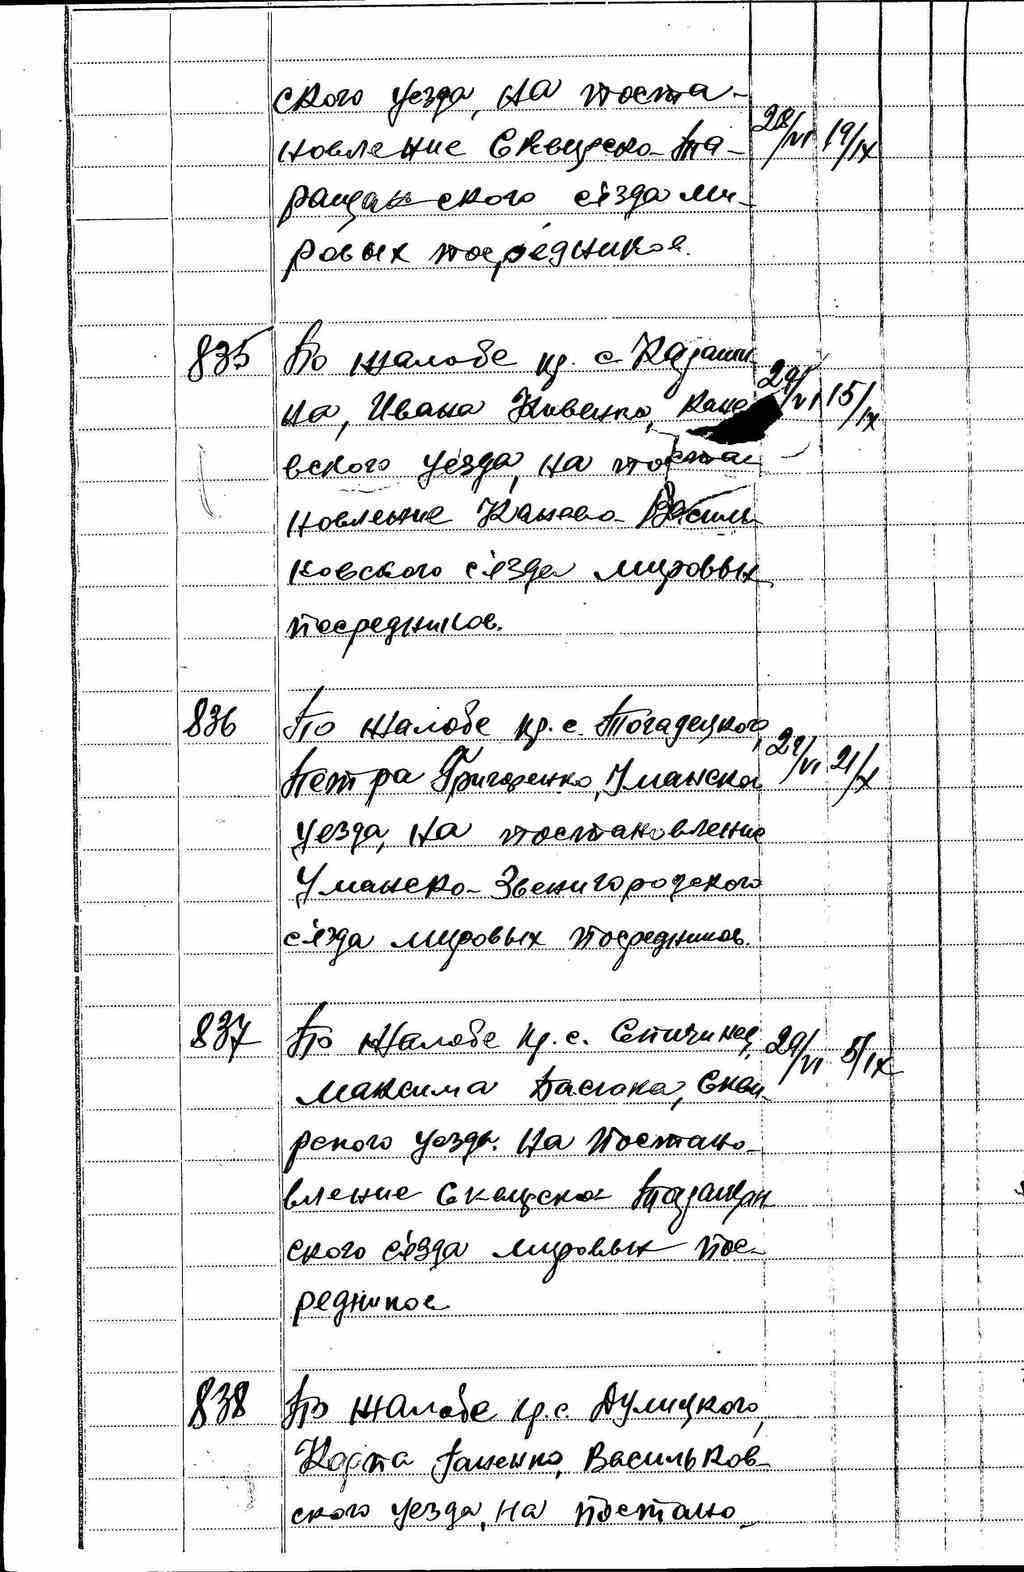 ского уезда, на поста-
новление Сквирско-Та- 28/VI 19/IX
ращанского сезда ми-
ровых посредников.
835 По жалобе кр. с. Казаши-
на, Ивана Кивенко, Кане- 29/VI 15/IX
вского уезда, на поста-
новление Канево-Василь-
ковского сезда мировых
посредников.
836 По жалобе кр. с. Погадецкого,
Петра Григоренко, Уманско 27/VI 21/X
уезда, на постановление
Уманско-Звенигородского
сезда мировых посредников.
837 По жалобе кр. с. Стичинец, 29/VI 5/IX
Максима Пасюка, Скви-
рского уезда. на постано-
вление Сквирско Таращан
ского сезда мировых пос-
редников
838 По жалобе кр. с. Дулицкого,
Карпа Гапенко, Васильков-
ского уезда, на постано-